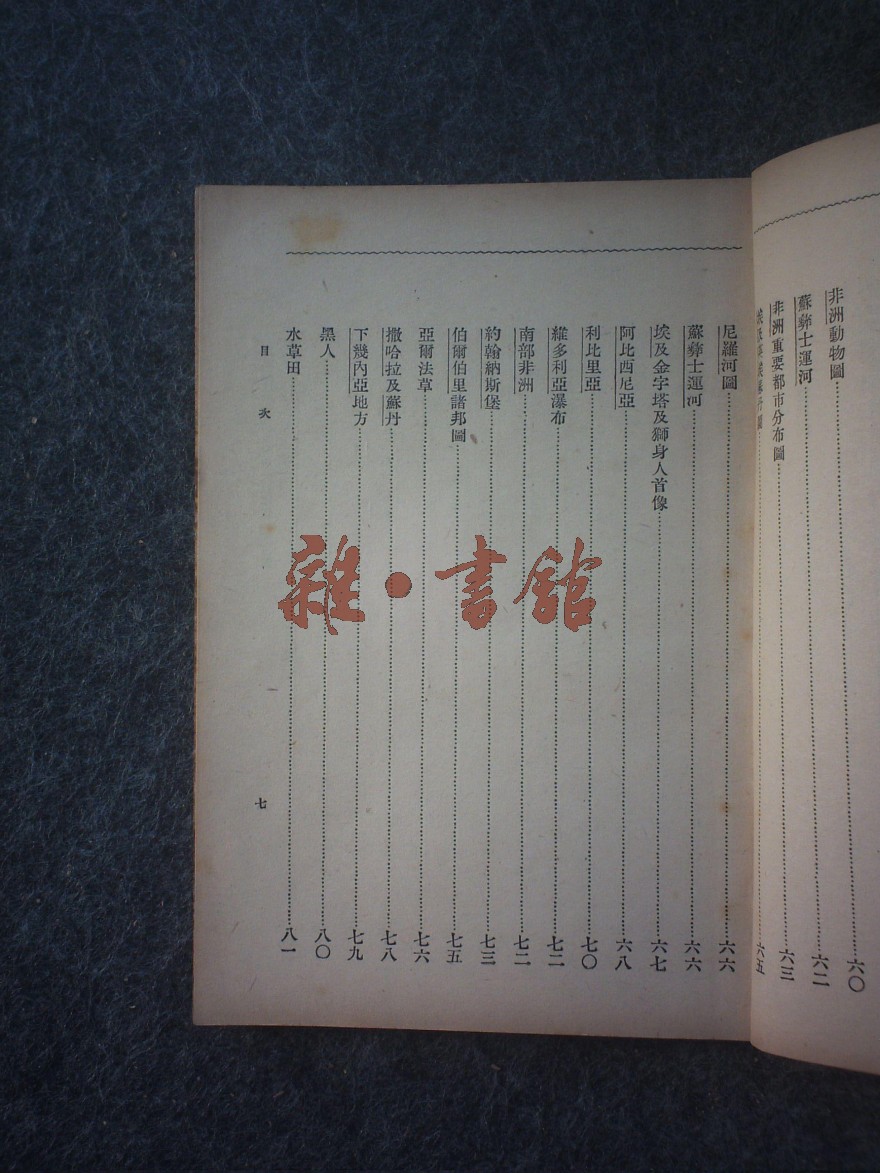 非洲動物圖……六〇
蘇彝士運河……六二
非洲重要都市分布圖……六三
六五
尼羅河圖……六六
蘇彝士運河……六六
埃及金字塔及獅身人首像……六七
阿比西尼亞……六八
利比里亞……七〇
維多利亞瀑布……七二
南部非洲……七二
約翰納斯堡……七三
伯爾伯里諸邦圖……七五
亞爾法草……七六
撒哈拉及蘇丹……七八
下幾內亞地方……七九
黑人……八〇
水草田……八一
目次
七
雜·書館